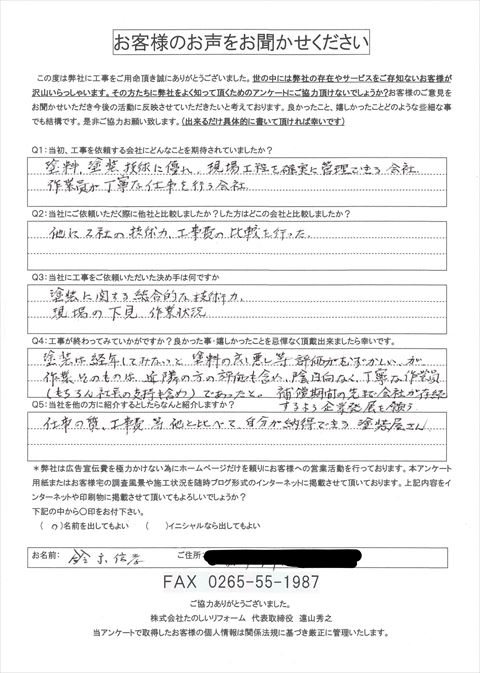 お客様のお声をお聞かせください
この度は弊社に工事をご用命頂き誠にありがとうございました。世の中には弊社の存在やサービスをご存知ないお客様が
沢山いらっしゃいます。その方たちに弊社をよく知って頂くためのアンケートにご協力頂けないでしょうか?お客様のご意見を
お聞かせいただき今後の活動に反映させていただきたいと考えております。良かったこと、嬉しかったことどのような些細な事
でも結構です。是非ご協力お願い致します。(出来るだけ具体的に書いて頂ければ幸いです)
Q1:当初、工事を依頼する会社にどんなことを期待されていましたか?
塗料、塗装技術に優れ、現場工程を確実に管理できる会社
作業員が丁寧な仕事を行う会社
Q2:当社にご依頼いただく際に他社と比較しましたか?した方はどこの会社と比較しましたか?
他に2社の技術力、工事費の比較を行った
Q3:当社に工事をご依頼いただいた決め手は何ですか
塗装に関する総合的な技術力
現場の下見 作業状況
Q4:工事が終わってみていかがですか?良かった事・嬉しかったことを忌憚なく頂戴出来ましたら幸いです。
塗装は経年してみないと塗料の良し悪し等評価がむずかしいが、
作業そのものは、近隣の方の評価も含め、陰日向なく、丁寧な作業員
(もちろん社長の支持も含め)であったと。 補償期間の先まで会社が存続
するよう企業発展を願う
Q5:当社を他の方に紹介するとしたらなんと紹介しますか?
仕事の質、工事費等他と比べて、自分が納得できる塗装屋さん
*弊社は広告宣伝費を極力かけない為にホームページだけを頼りにお客様への営業活動を行っております。本アンケート
用紙またはお客様宅の調査風景や施工状況を随時ブログ形式のインターネットに掲載させて頂いております。上記内容をイ
ンターネットや印刷物に掲載させて頂いてもよろしいでしょうか?
下記の中から〇印をお付下さい。
(○)名前を出してもよい ( )イニシャルなら出してもよい
お名前: 鈴木 信孝 ご住所:
FAX 0265-55-1987
ご協力ありがとうございました。
株式会社たのしいリフォーム 代表取締役 遠山秀之
当アンケートで取得したお客様の個人情報は関係法規に基づき厳正に管理いたします。